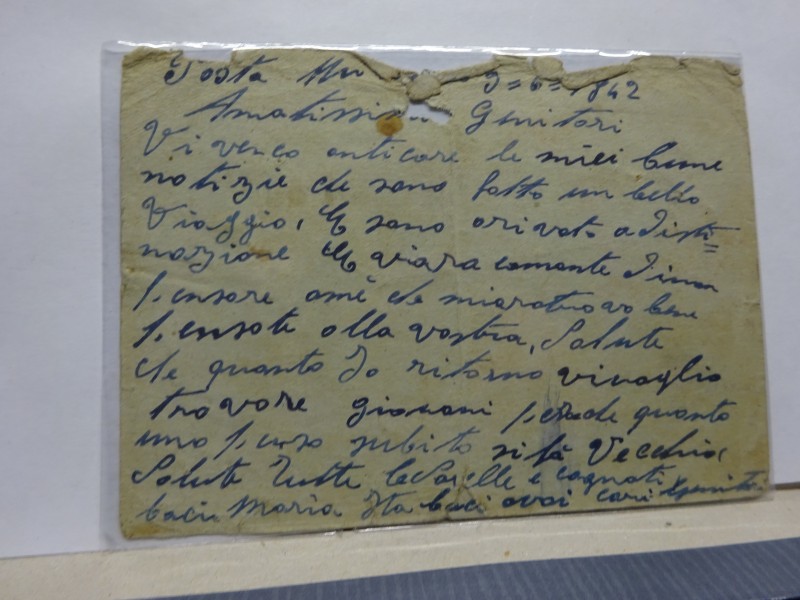 Posta 3=6=1942
Amatissimi Genitori
Vi vengo anticare le miei bune
notizie che sono fatto un bello
Viaggio, E sono arivato a disti=
nazione E viara comante di non
pensare amè che miaratruovo bene
pensate alla vostra, Salute
che quanto Io ritorno vivoglio
trovare giovani perche quanto
uno penza subito si fà Vecchio,
Salute Tutte le Sorelle e cognati
baci Maria Ita baci avoi cari Genitori